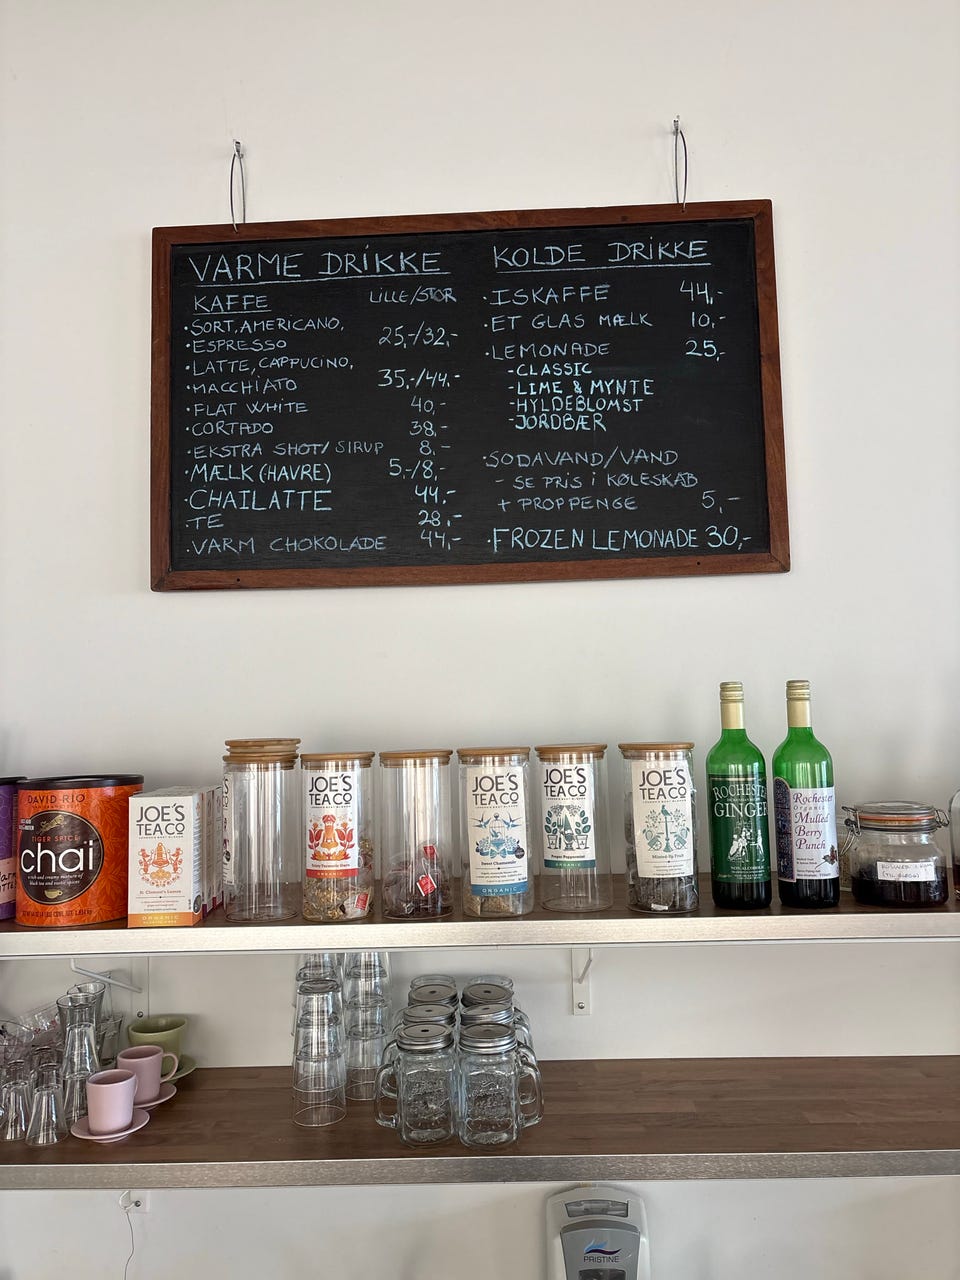 VARME DRIKKE
KAFFE LILLE/STOR
·SORT, AMERICANO,
·ESPRESSO 25,-/32,-
·LATTE, CAPPUCINO,
·MACCHIATO 35,-/44,-
·FLAT WHITE 40,-
·CORTADO 38,-
·EKSTRA SHOT/ SIRUP 8,-
·MÆLK (HAVRE) 5,-/8,-
·CHAILATTE 44,-
·TE 28,-
·VARM CHOKOLADE 44,-
KOLDE DRIKKE
·ISKAFFE 44,-
·ET GLAS MÆLK 10,-
·LEMONADE 25,-
-CLASSIC
-LIME & MYNTE
-HYLDEBLOMST
-JORDBÆR
·SODAVAND/VAND
- SE PRIS I KØLESKAB
+ PROPPENGE 5,-
·FROZEN LEMONADE 30,-
DAVID RIO
TIGER SPICE
chai
JOE'S
TEA CO
St. Clement's Lemon
ORGANIC
JOE'S
TEA CO
ORGANIC
JOE'S
TEA CO
Sweet Chamomile
ORGANIC
JOE'S
TEA CO
Proper Peppermint
ORGANIC
JOE'S
TEA CO
Minted-Up Fruit
ROCHESTER
GINGER
Rochester
Organic
Mulled
Berry
Punch
PRISTINE